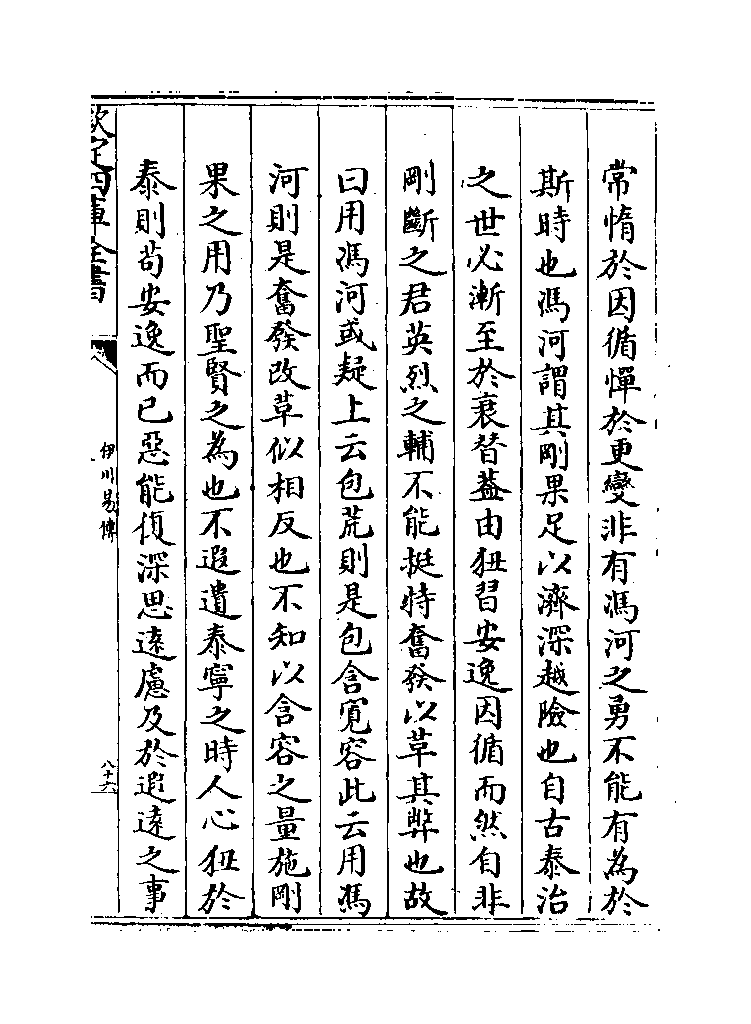 常惰於因循憚於更變非有馮河之勇不能有為於
斯時也馮河謂其剛果足以濟深越險也自古泰治
之世必漸至於衰替葢由狃習安逸因循而然自非
剛斷之君英烈之輔不能挺特奮發以革其弊也故
曰用馮河或疑上云包荒則是包含寛容此云用馮
河則是奮發改革似相反也不知以含容之量施剛
果之用乃聖賢之為也不遐遺泰寧之時人心狃於
泰則苟安逸而已惡能復深思遠慮及於遐遠之事
欽定四庫全書
伊川易傳
八十六